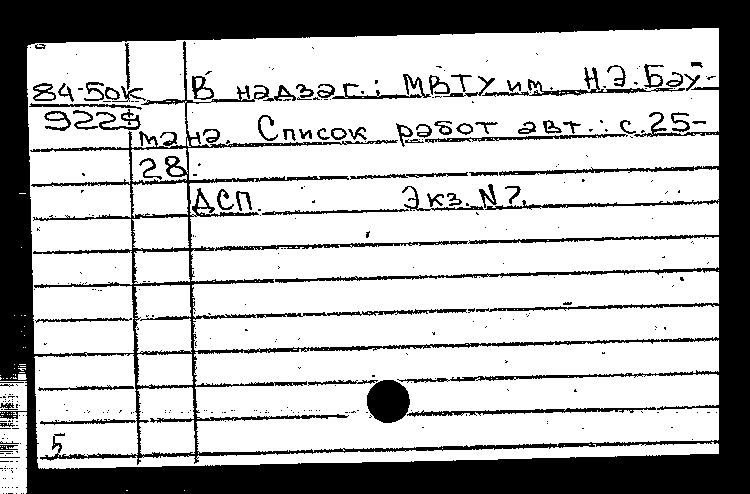 84-50к В надзаг.: МВТУ им. Н.Э.Бау-
9229 мана. Список работ авт.: с.25-
28.
ДСП. Экз. N 7.
5